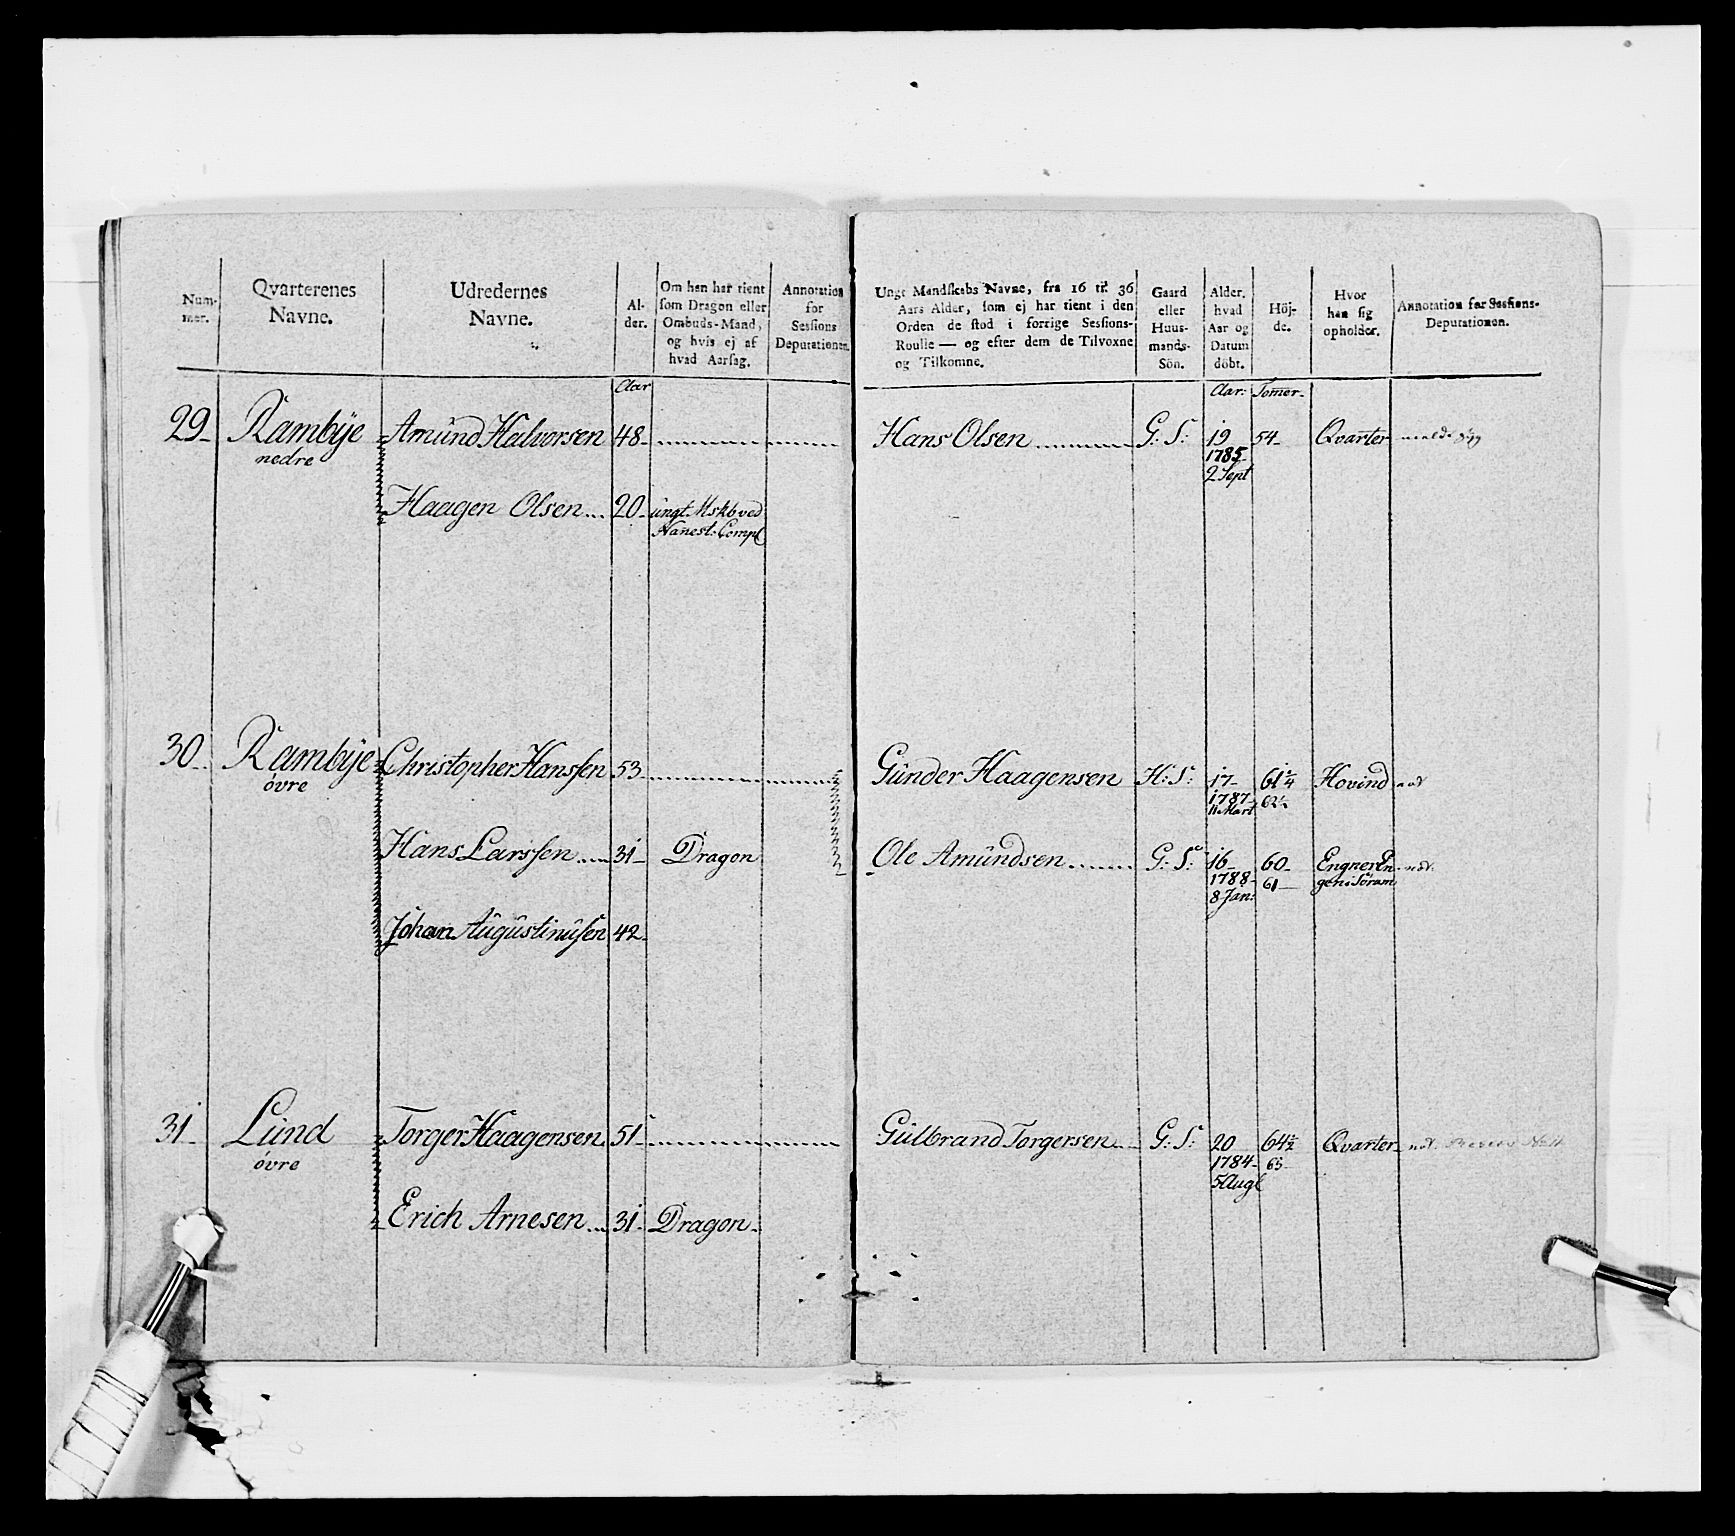 Num-
mer.
Qvarterenes
Navne.
Udredernes
Navne.
Al-
der.
Om han har tient
som Dragon eller
Ombuds-Mand,
og hvis ej af
hvad Aarsag.
Annotation
for
Sessions
Deputationen.
Aar
29 Rambÿe Amund Halvorsen 48
nedre
Haagen Olsen 20 ungt Mskb ved
Nanest: Comp
30 Rambÿe Christopher Hanssen 53
övre
Hans Larssen 31 Dragon
Johan Augustinusen 42
31 Lund Torger Haagensen 51
övre
Erich Arnesen 31 Dragon
Ungt Mandskabs Navne, fra 16 til 36
Aars Alder, som ej har tient i den
Orden de stod i forrige Sessions-
Roulle — og efter dem de Tilvoxne
og Tilkomne.
Gaard
eller
Huus-
mands-
Sön.
Alder,
hvad
Aar og
Datum
döbt.
Höj-
de.
Hvor
han sig
opholder.
Annotation for Sessions-
Deputationen.
Aar: Tomer
Hans Olsen G: S: 19 54 Qvarter
1785
2 Sept
Gunder Haagensen H: S: 17 61 1/4 Hovind
1787 62 1/2
11 Mart
Ole Amundsen G: S: 16 60 Engner En
1788 61 gen i Söram
8 Jan:
Gulbrand Torgersen G: S: 20 64 1/2 Qvarter
1784 65
5 Aug